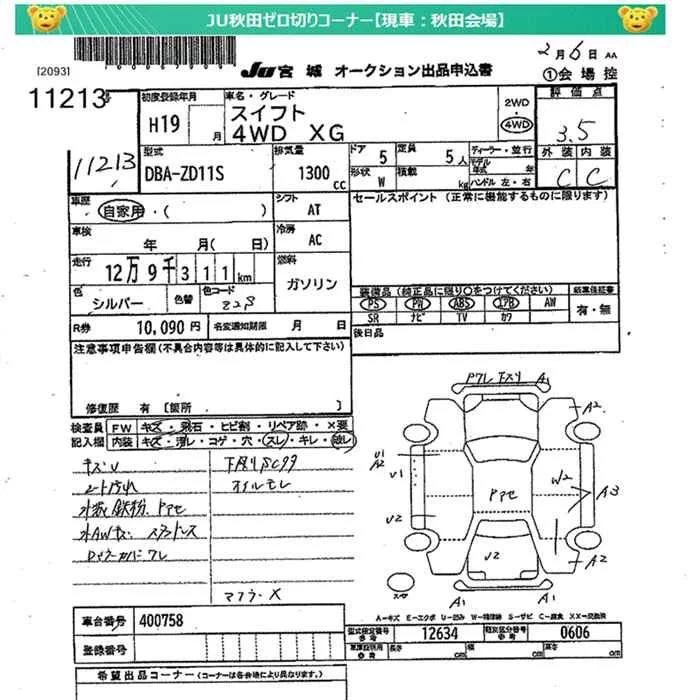 JU秋田ゼロ切りコーナー【現車：秋田会場】
[2093]
JU宮城 オークション出品申込書
2月6日 AA
①会場控
11213
初度登録年月
H19 月
車名・グレード
スイフト
4WD XG
2WD
4WD
評価点
3.5
11213
型式
DBA-ZD11S
排気量
1300cc
ドア
5
定員
5人
形状
W
積載
kg
ディーラー・並行
モデル年式 年
ハンドル 左・右
外装 内装
C C
車歴
自家用・( )
シフト
AT
セールスポイント (正常に機能するものに限ります)
車検
年 月( 日)
冷房
AC
走行
12万9千311km
燃料
ガソリン
色
シルバー
色替
色コード
Z2S
装備品 (純正品に限り○をつけてください)
PS PW ABS エアB AW
SR ナビ TV カワ
新車保証書
有・無
R券 10,090円
名変通知期限 月 日
後日品
注意事項申告欄(不具合内容等は具体的に記入して下さい)
修復歴 有 [箇所 ]
検査員記入欄
FW キズ・飛石・ヒビ割・リペア跡・×要
内装 キズ・汚レ・コゲ・穴・スレ・キレ・破レ
キズU
シート汚れ
下廻りSC99
オイルモレ
マフラーX
Pワレ 下スリ A1
A2
U1
A2
U1
U2
Pアセ
W2
A3
U2
A2
A1 A1
A-キズ E-エクボ U-凹み W-補修跡 S-サビ C-腐食 XX-交換済
車台番号 400758
型式指定番号 参考 12634
類別区分番号 参考 0606
登録番号
車庫証明用 参考 長さ cm 幅 cm 高さ cm
希望出品コーナー (コーナーは各会場により異なります。)